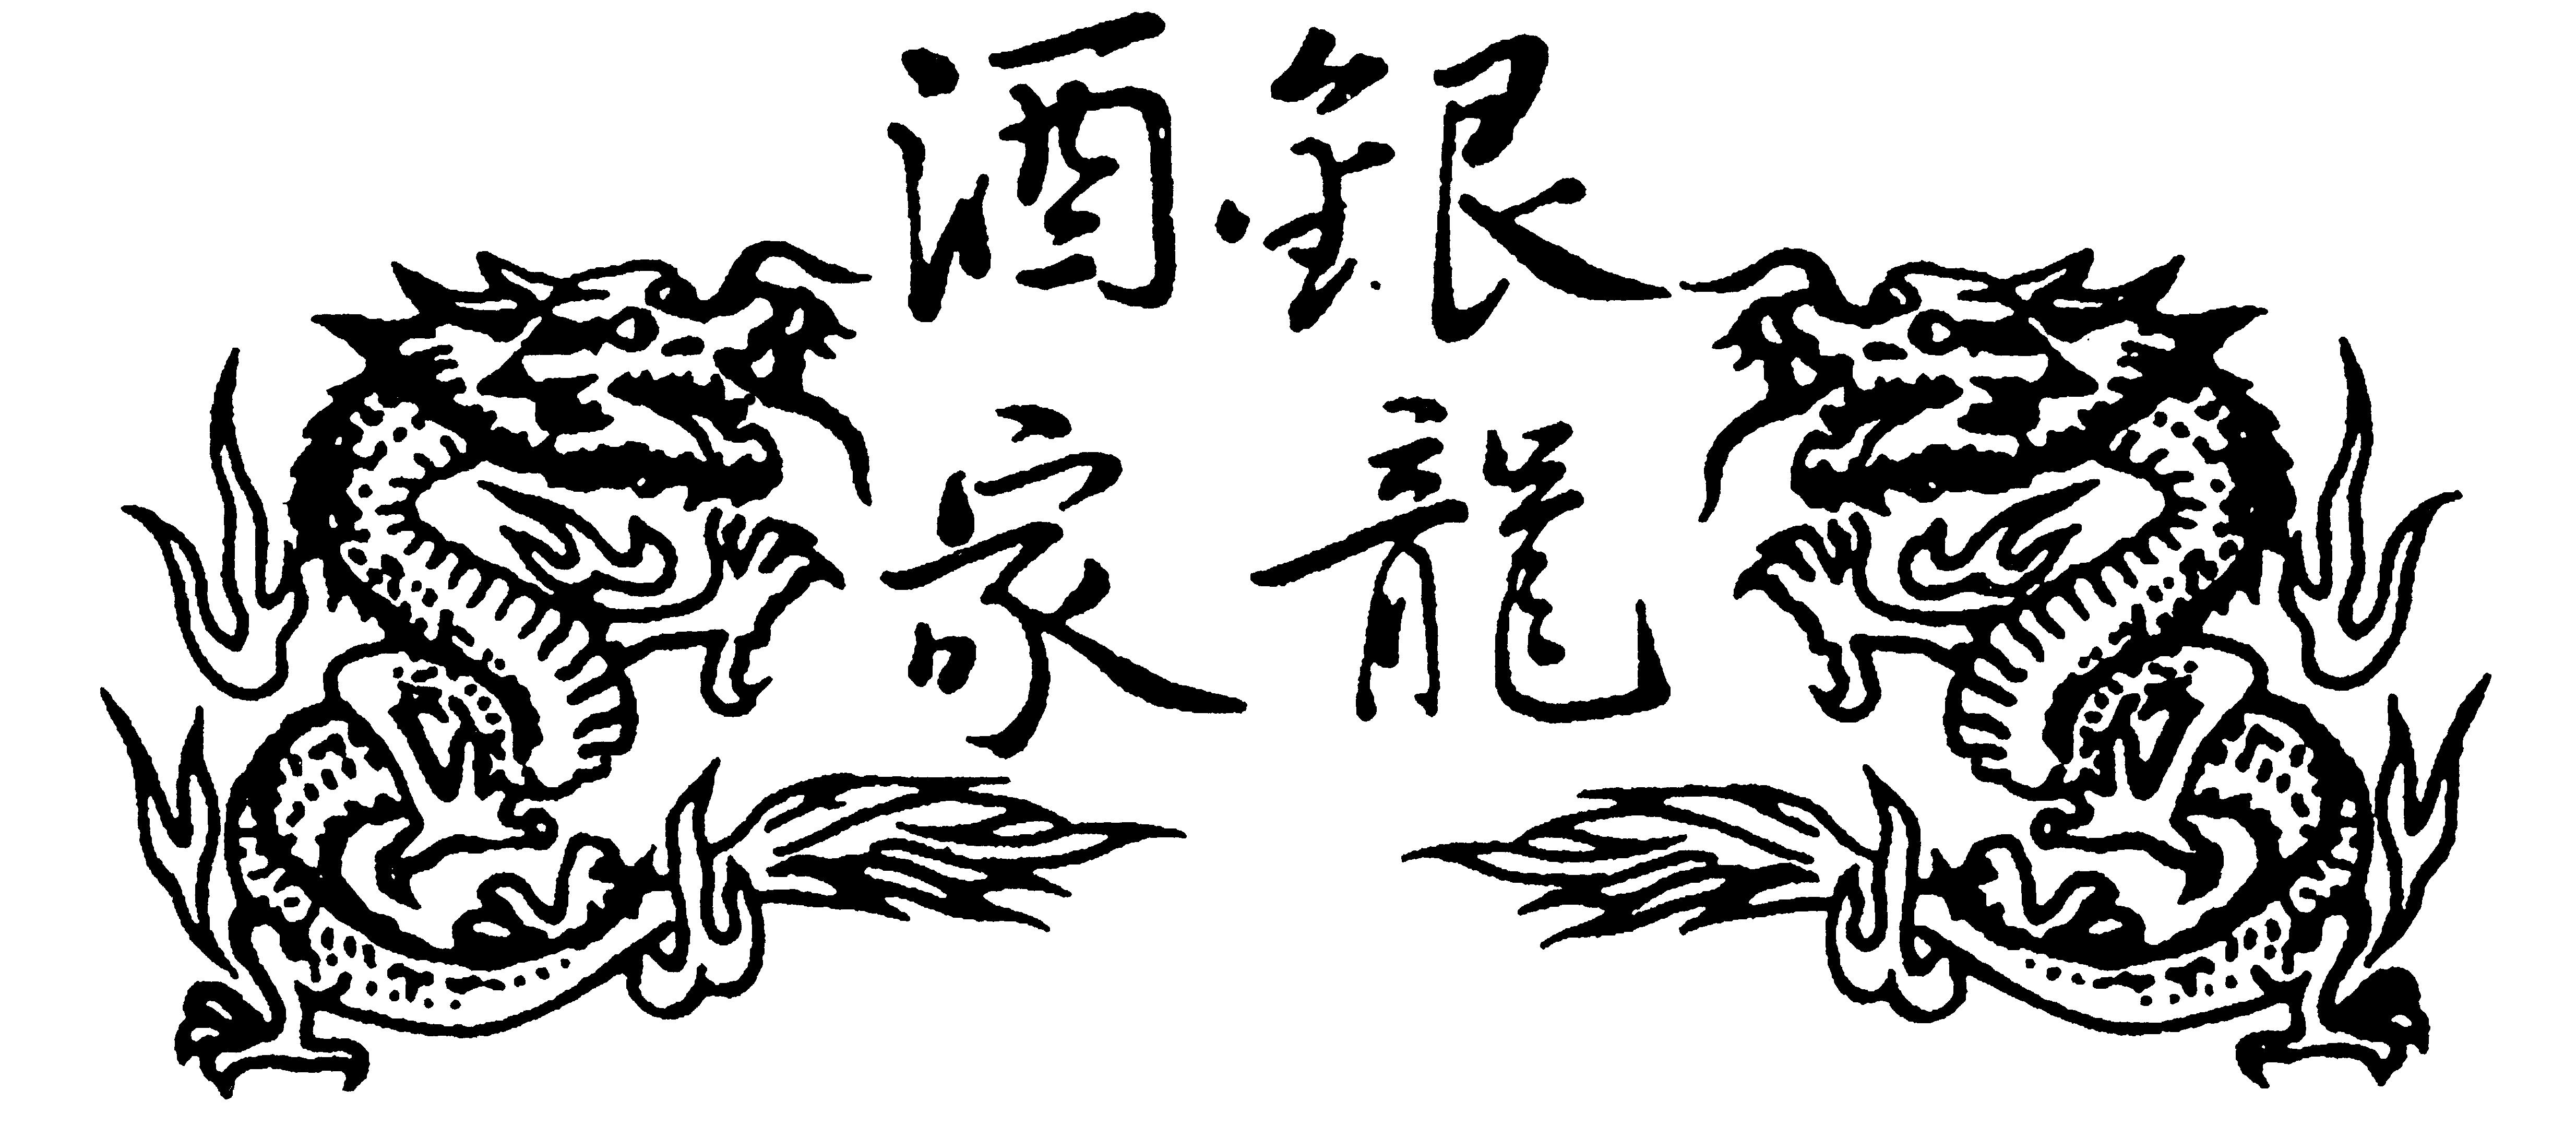 銀龍
酒家